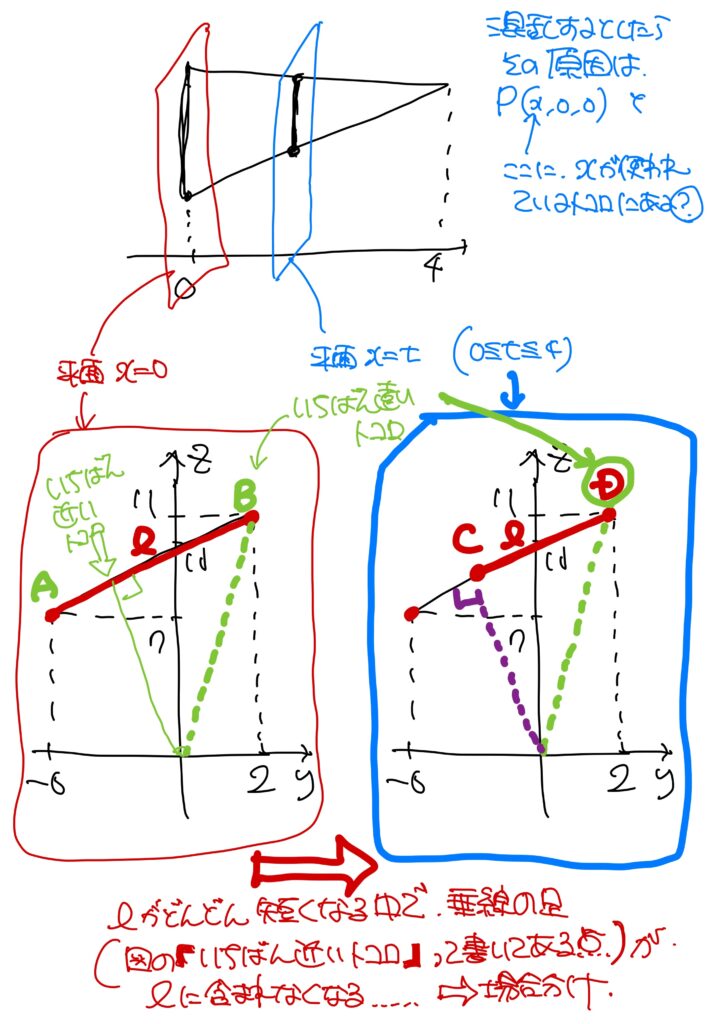 混乱するとしたら
その原因は.
P(x,0,0) と
ここに.xが使われ
ているトコロにある?
0
4
平面 x=0
平面 x=t (0≦t≦4)
いちばん遠い
トコロ
いちばん
近い
トコロ
z
11
B
l
10
A
7
-6
2
y
z
11
D
C
l
10
7
-6
2
y
lがどんどん短くなる中で.垂線の足
(図の『いちばん近いトコロ』って書いてある点)が.
lに含まれなくなる…… ⇒場合分け.